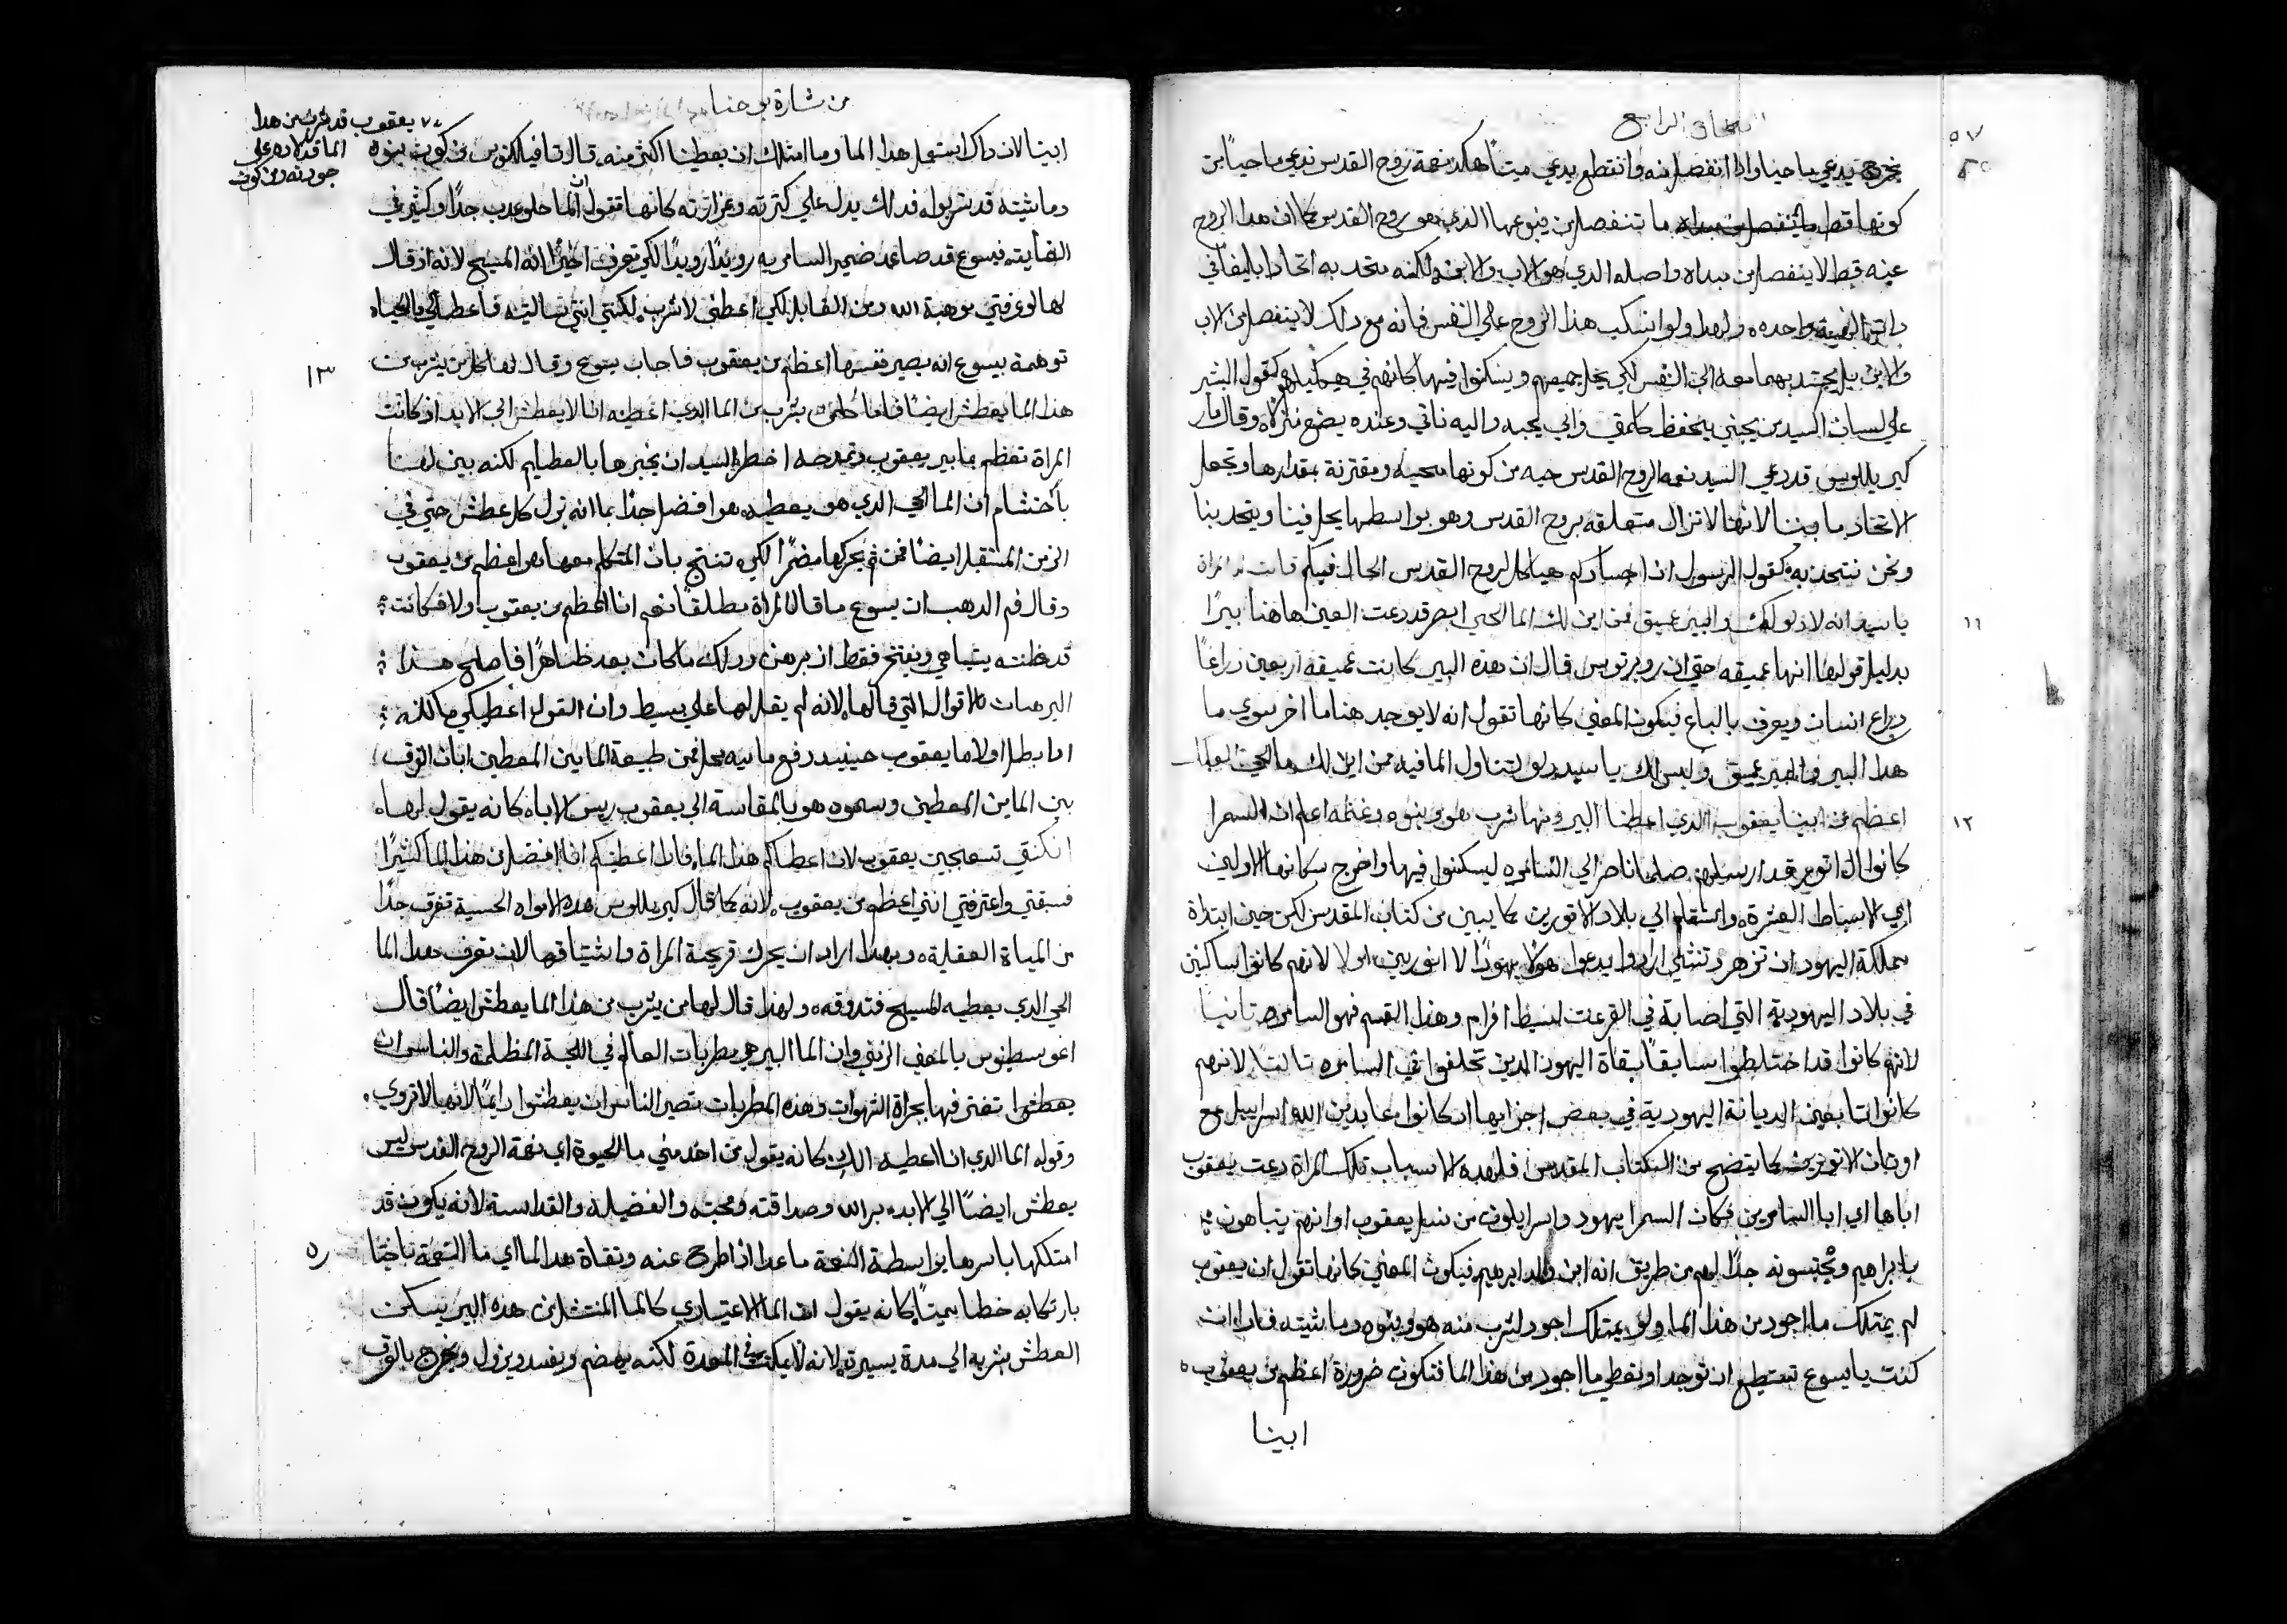 الاصحاح الرابع
٥٧
يخرج يدعي ما حيا واذا انفصل منه وانقطع يدعي ميتا هكذا نعمة روح القدس تدعي ما حيا من
كونها قط ما تنفصل من ينبوعها الذي هو روح القدس كما ان هذا الروح
عينه قط لا ينفصل من مبداه واصله الذي هو الاب والابن ولكنه متحد به اتحادا بليغا في
واحده ولهذا ولو انسكب هذا الروح علي النفس فانه مع ذلك لا ينفصل من الاب
والابن بل يجتذبهما معه الي النفس لكي يحل جميعهم ويسكنوا فيها كانهم في هيكلهم كقول البشير
علي لسان السيد من يحبني يحفظ كلامي وابي يحبه واليه ناتي وعنده نصنع منزلا وقال مار
كيرياللوس قد دعي السيد نعمة الروح القدس حيه من كونها محييه ومقترنة بمقدارها وتجعل
الاتحاد ما بيننا لانها لا تزال متعلقه بروح القدس وهو بواسطها يحل فينا ويتحد بنا
ونحن نتحد به كقول الرسول ان اجسادكم هياكل لروح القدس الحال فيكم قالت له المراة
١١
يا سيد انه لا دلو لك والبير عميق فمن اين لك الما الحي ابصر قد دعت العين هاهنا بيرا
بدليل قولها انها عميقه حتي ان روبرتوس قال ان هذه البير كانت عميقه اربعين ذراعا
بذراع انسان ويعرف بالباع فيكون المعني كانها تقول انه لا يوجد هنا ما اخر سوي ما
هذا البير والبير عميق وليس لك يا سيد دلو لتناول الما فيه فمن اين لك ما الحي العلك
١٢
اعظم من ابينا يعقوب الذي اعطنا البير ومنها شرب هو وبنوه وغنمه اعلم ان السمرا
كانوا ال اتور قد ارسلهم صلماناصر الي السامره ليسكنوا فيها واخرج سكانها الاولين
اي الاسباط العشرة وانتقلهم الي بلاد الاتوريين كما يبين من كتاب المقدس لكن حين ابتداة
مملكة اليهود ان تزهر وتنشلي ارادوا يدعوا هولا يهودا لا اتوريين اولا لانهم كانوا ساكنين
في بلاد اليهودية التي اصابة في القرعت لسبط افرام وهذا القسم فهو السامره تانيا
لانهم كانوا قد اختلطوا سابقا بقاة اليهود الذين تخلفوا في السامره تالتا لانهم
كانوا تابعين الديانة اليهودية في بعض اجزايها اذ كانوا عابدين الله اسراييل مع
اوتان الاتوريين كما يتضح من الكتاب المقدس فلهده الاسباب تلك المراة دعت يعقوب
اباها اي ابا السامريين فكان السمرا يهود واسراييلون من نسل يعقوب اوانهم يتباهون
بابراهيم ويحتسبونه جدا لهم من طريق انه ابن ولد ابرهيم فيكون المعني كانها تقول ان يعقوب
لم يمتلك ما اجود من هذا الما ولو يمتلك اجود لشرب منه هو وبنوه وماشيته فاذا انت
كنت يا يسوع تستطيع ان توجد او تعطي ما اجود من هذا الما فتكون ضرورة اعظم من يعقوب
ابينا
من بشارة يوحنا
ابينا لان ذاك استعمل هذا الما وما امتلك ان يعطينا اكثر منه قال تافيلكتوس من كون بنوه
يعقوب قد شرب من هذا
الما قد دل علي
جودته ومن كون
وماشيته قد شربوا فدلك يدل علي كثرته وغزارته كانها تقول ان الما حلو عدب جدا وكثير في
الغايته فيسوع قد صاعد ضمير السامريه رويدا رويدا لكي تعرف اخيرا انه المسيح لانه اذ قال
لها لو عرفتي موهبة الله ومن القايل لكي اعطني لاشرب لكنتي انتي سالتيه فاعطاكي ما الحياه
توهمة بيسوع انه يصير نفسها اعظم من يعقوب فاجاب يسوع وقال لها كل من يشرب من
١٣
هذا الما يعطش ايضا فاما كلمن يشرب من الما الذي اعطيه انا لا يعطش الي الابد اذ كانت
المراة تعظم ما بير يعقوب وتمدحه اضطر السيد ان يخبرها بالعظايم لكنه بين لها
باحتشام ان الما الحي الذي هو يعطيه هو افضل جدا بما انه يزل كل عطش حتي في
الزمن المستقبل ايضا فمن ثم يحركها مضمرا لكي تنتج بان المتكلم معها هو اعظم من يعقوب
وقال فم الدهب ان يسوع ما قال للمراة مطلقا نعم انا اعظم من يعقوب ولا فكانت
قد ظنته يتباهي ويفتخر فقط اذ برهن ودلك ما كان بعد ظاهرا فاصلح هذا
البرهان بالاقوال التي قالها لانه لم يقل لها علي بسيط وان القول اعطيكي ما لكنه
اذا بطل اولا ما يعقوب حينيد رفع مابيه محلا فمن طبيعة المابين المعطين ابان الفرق
بين المابين المعطين وسموه هو بالمقاسة الي يعقوب ريس الاباه كانه يقول لها
ان كنتي تتعجبين يعقوب لان اعطاكم هذا الما فاذا اعطيتكم انا افضل من هذا الما كثيرا
فسبقتي واعترفتي انني اعظم من يعقوب لانه كما قال كيرياللوس هذه الامواه الحسية تفرق جدا
من المياة العقلية وبهذا اراد ان يحرك قريحة المراة واشتياقها لان تعرف هذا الما
الحي الذي يعطيه المسيح فتذوقه ولهذا قال لها من يشرب من هذا الما يعطش ايضا قال
اغوسطينوس بالمعني الرمزي وان الما البير هو مطربات العالم في اللجة المظلمة والناس ان
يعطشوا تغترف فيها بجراة الشهوات وهذه المطربات تصير الناس ان يعطشوا دايما لانها لا تروي
وقوله الما الذي انا اعطيه الك كانه يقول من اخد مني ما الحيوة اي نعمة الروح القدس ليس
يعطش ايضا الي الابد بر الله وصداقته ومحبته والفضيله والقداسة لانه يكون قد
امتلكها باسرها بواسطة النعمة ما عدا اذا طرح عنه ونقاة هذا الما اي ما النعمة باختيا
ره
بارتكابه خطا مميتا كانه يقول ان الما الاعتيادي كالما المنتشل من هذه البير يسكن
العطش بشربه الي مدة يسيرة لانه لا يمكث في المعدة لكنه يهضم ويفسد ويزول ويخرج بالعرق